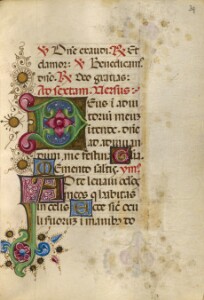 ℣ Dñe exaudi. ℟ Et
clamor. ℣ Benedicam9
dño. ℟ Deo gratias.
Ad sextam. Versus.
Deus i adiu
toriu meu
itende. dñe
ad adiuuan
dum me festina. Gl̃ia
Memento salutis.
Ad te leuaui oclos
meos q habitas
in celis. Ecce sic ocu
li seruorũ i manib9 do